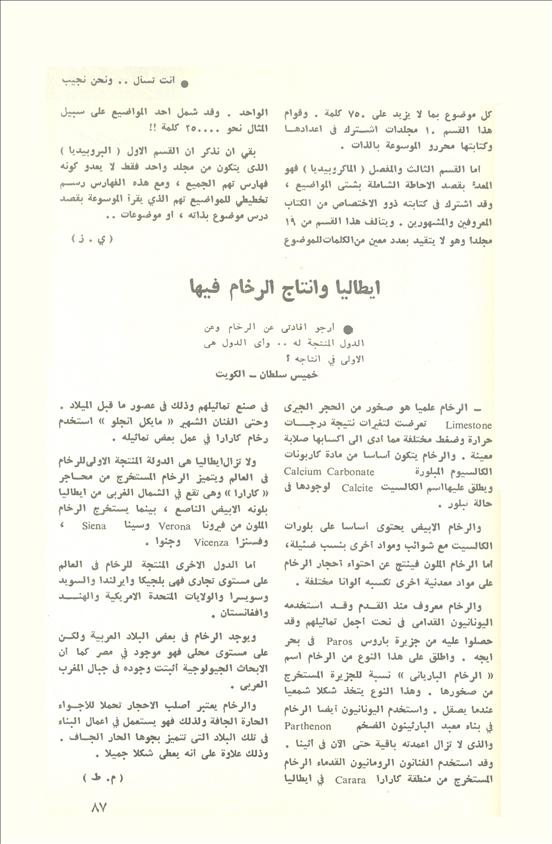 ● انت تسأل .. ونحن نجيب
كل موضوع بما لا يزيد على ٧٥٠ كلمة . وقوام
هذا القسم ١٠ مجلدات اشترك في اعدادها
وكتابتها محررو الموسوعة بالذات .
اما القسم الثالث والمفصل ( الماكروبيديا ) فهو
المعد بقصد الاحاطة الشاملة بشتى المواضيع ،
وقد اشترك في كتابته ذوو الاختصاص من الكتاب
المعروفين والمشهورين . ويتألف هذا القسم من ١٩
مجلدا وهو لا يتقيد بعدد معين من الكلمات للموضوع
الواحد . وقد شمل احد المواضيع على سبيل
المثال نحو ٢٥٠٠٠٠ كلمة !!
بقي ان نذكر ان القسم الاول ( البروبيديا )
الذى يتكون من مجلد واحد فقط لا يعدو كونه
فهارس تهم الجميع ، ومع هذه الفهارس رسم
تخطيطي للمواضيع تهم الذي يقرأ الموسوعة بقصد
درس موضوع بذاته ، او موضوعات ..
( ي . ز )
ايطاليا وانتاج الرخام فيها
● أرجو افادتى عن الرخام وعن
الدول المنتجة له .. وأى الدول هى
الاولى في انتاجه ؟
خميس سلطان – الكويت
– الرخام علميا هو صخور من الحجر الجيرى
Limestone تعرضت لتغيرات نتيجة درجات
حرارة وضغط مختلفة مما ادى الى اكسابها صلابة
معينة . والرخام يتكون أساسا من مادة كاربونات
الكالسيوم المبلورة Calcium Carbonate
ويطلق عليها اسم الكالسيت Calcite لوجودها في
حالة تبلور .
والرخام الابيض يحتوى اساسا على بلورات
الكالسيت مع شوائب ومواد اخرى بنسب ضئيلة،
أما الرخام الملون فينتج عن احتواء أحجار الرخام
على مواد معدنية اخرى تكسبه ألوانا مختلفة .
والرخام معروف منذ القدم وقد استخدمه
اليونانيون القدامى في نحت اجمل تماثيلهم وقد
حصلوا عليه من جزيرة باروس Paros في بحر
ايجه . واطلق على هذا النوع من الرخام اسم
« الرخام الباريانى » نسبة للجزيرة المستخرج
من صخورها . وهذا النوع يتخذ شكلا شمعيا
عندما يصقل . واستخدم اليونانيون أيضا الرخام
في بناء معبد البارثينون الضخم Parthenon
والذى لا تزال اعمدته باقية حتى الآن في أثينا .
وقد استخدم الفنانون الرومانيون القدماء الرخام
المستخرج من منطقة كارارا Carara في ايطاليا
في صنع تماثيلهم وذلك في عصور ما قبل الميلاد .
وحتى الفنان الشهير « مايكل انجلو » استخدم
رخام كارارا في عمل بعض تماثيله .
ولا تزال ايطاليا هى الدولة المنتجة الاولى للرخام
في العالم ويتميز الرخام المستخرج من محاجر
« كارارا » وهى تقع في الشمال الغربى من ايطاليا
بلونه الابيض الناصع ، بينما يستخرج الرخام
الملون من فيرونا Verona وسينا Siena ،
وفسنزا Vicenza وجنوا .
أما الدول الاخرى المنتجة للرخام في العالم
على مستوى تجارى فهى بلجيكا وايرلندا والسويد
وسويسرا والولايات المتحدة الامريكية والهند
وافغانستان .
ويوجد الرخام في بعض البلاد العربية ولكن
على مستوى محلى فهو موجود في مصر كما ان
الابحاث الجيولوجية أثبتت وجوده في جبال المغرب
العربى .
والرخام يعتبر أصلب الاحجار تحملا للاجواء
الحارة الجافة ولذلك فهو يستعمل في اعمال البناء
في تلك البلاد التى تتميز بجوها الحار الجاف .
وذلك علاوة على انه يعطى شكلا جميلا .
( م. ط )
٨٧